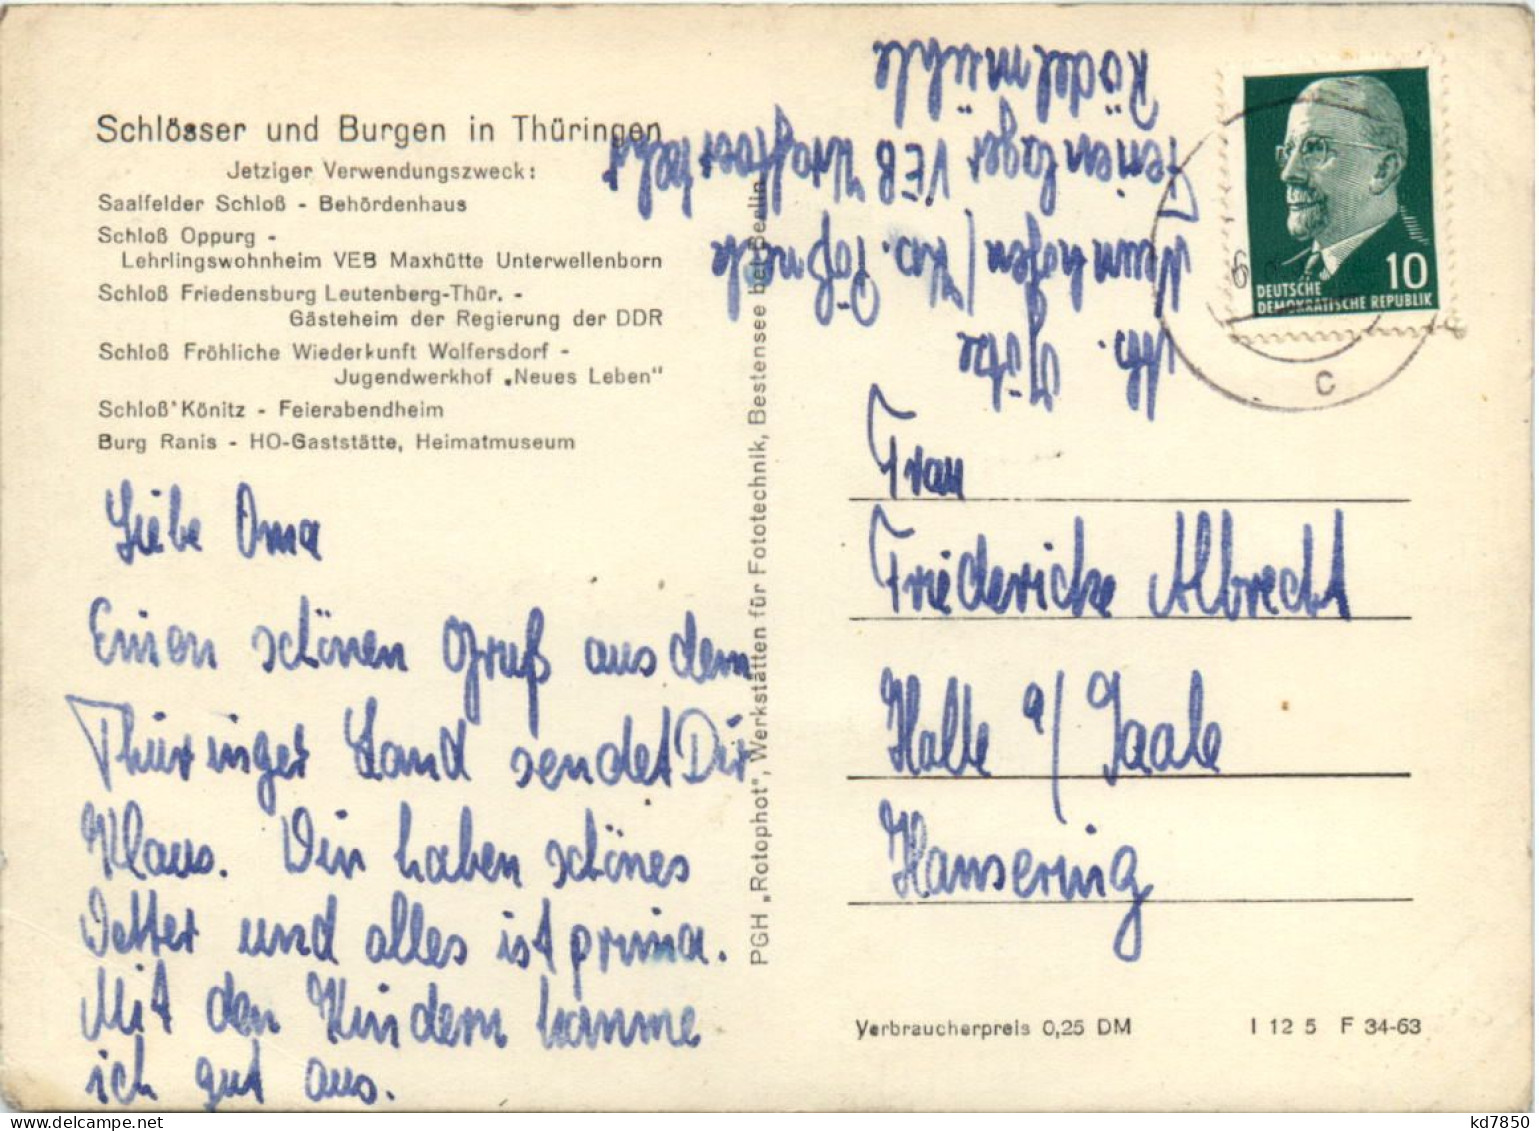 Schlösser und Burgen in Thüringen
Jetziger Verwendungszweck:
Saalfelder Schloß - Behördenhaus
Schloß Oppurg -
Lehrlingswohnheim VEB Maxhütte Unterwellenborn
Schloß Friedensburg Leutenberg-Thür. -
Gästeheim der Regierung der DDR
Schloß Fröhliche Wiederkunft Wolfersdorf -
Jugendwerkhof „Neues Leben"
Schloß Könitz - Feierabendheim
Burg Ranis - HO-Gaststätte, Heimatmuseum
Liebe Oma
Einen schönen Gruß aus dem
Thüringer Land sendet Dir
Klaus. Wir haben schönes
Wetter und alles ist prima.
Mit den Kindern komme
ich gut aus.
PGH „Rotophot", Werkstätten für Fototechnik, Bestensee bei Berlin
Ab. Götze
Neunhofen / Krs. Pößneck
Ferienlager VEB Kraftverkehr
Rödelmühle
10
DEUTSCHE
DEMOKRATISCHE REPUBLIK
6
c
Frau
Friedericke Albrecht
Halle a/ Saale
Hansering
Verbraucherpreis 0,25 DM
I 12 5 F 34-63
oldthing.net
kd7850